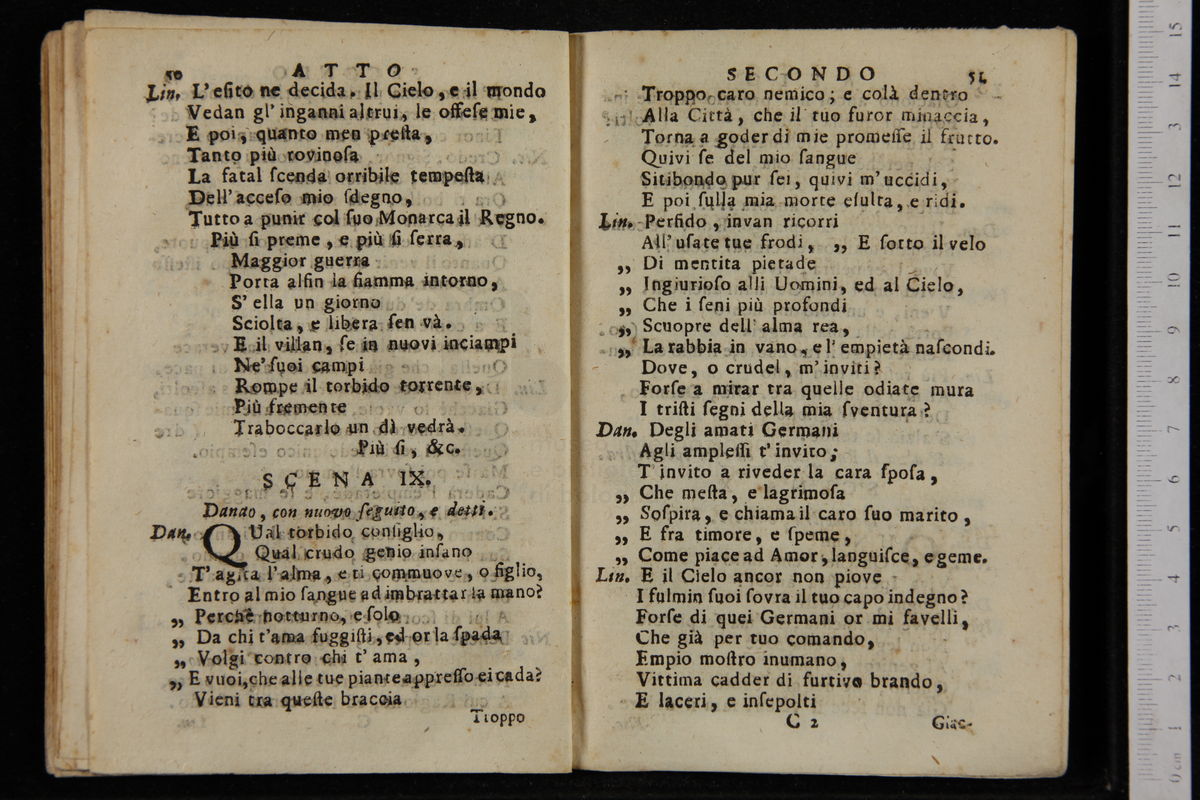 50 ATTO
Lin. L'eſito ne decida. Il Cielo, e il mondo
Vedan gl'inganni altrui, le offeſe mie,
E poi, quanto men preſta,
Tanto più rovinoſa
La fatal ſcenda orribile tempeſta
Dell'acceſo mio ſdegno,
Tutto a punir col ſuo Monarca il Regno.
Più ſi preme, e più ſi ſerra,
Maggior guerra
Porta alfin la fiamma intorno,
S'ella un giorno
Sciolta, e libera ſen và.
E il villan, ſe in nuovi inciampi
Ne'ſuoi campi
Rompe il torbido torrente,
Più fremente
Traboccarlo un dì vedrà.
Più ſi, &c.
SCENA IX.
Danao, con nuovo ſeguito, e detti.
Dan. QUal torbido conſiglio,
Qual crudo genio inſano
T'agita l'alma, e ti commuove, o figlio,
Entro al mio ſangue ad imbrattar la mano?
„ Perchè notturno, e ſolo
„ Da chi t'ama fuggiſti, ed or la ſpada
„ Volgi contro chi t'ama,
„ E vuoi, che alle tue piante appreſſo ei cada?
Vieni tra queſte braccia
Troppo
SECONDO 51
Troppo caro nemico; e colà dentro
Alla Città, che il tuo furor minaccia,
Torna a goder di mie promeſſe il frutto.
Quivi ſe del mio ſangue
Sitibondo pur ſei, quivi m'uccidi,
E poi ſulla mia morte eſulta, e ridi.
Lin. Perfido, invan ricorri
All'uſate tue frodi, „ E ſotto il velo
„ Di mentita pietade
„ Ingiurioſo alli Uomini, ed al Cielo,
„ Che i ſeni più profondi
„ Scuopre dell'alma rea,
„ La rabbia in vano, e l'empietà naſcondi.
Dove, o crudel, m'inviti?
Forſe a mirar tra quelle odiate mura
I triſti ſegni della mia ſventura?
Dan. Degli amati Germani
Agli ampleſſi t'invito;
T'invito a riveder la cara ſpoſa,
„ Che meſta, e lagrimoſa
„ Soſpira, e chiama il caro ſuo marito,
„ E fra timore, e ſpeme,
„ Come piace ad Amor, languiſce, e geme.
Lin. E il Cielo ancor non piove
I fulmin ſuoi ſovra il tuo capo indegno?
Forſe di quei Germani or mi favelli,
Che già per tuo comando,
Empio moſtro inumano,
Vittima cadder di furtivo brando,
E laceri, e inſepolti
C 2 Giac-
15
14
13
12
11
10
9
8
7
6
5
4
3
2
1
0 cm